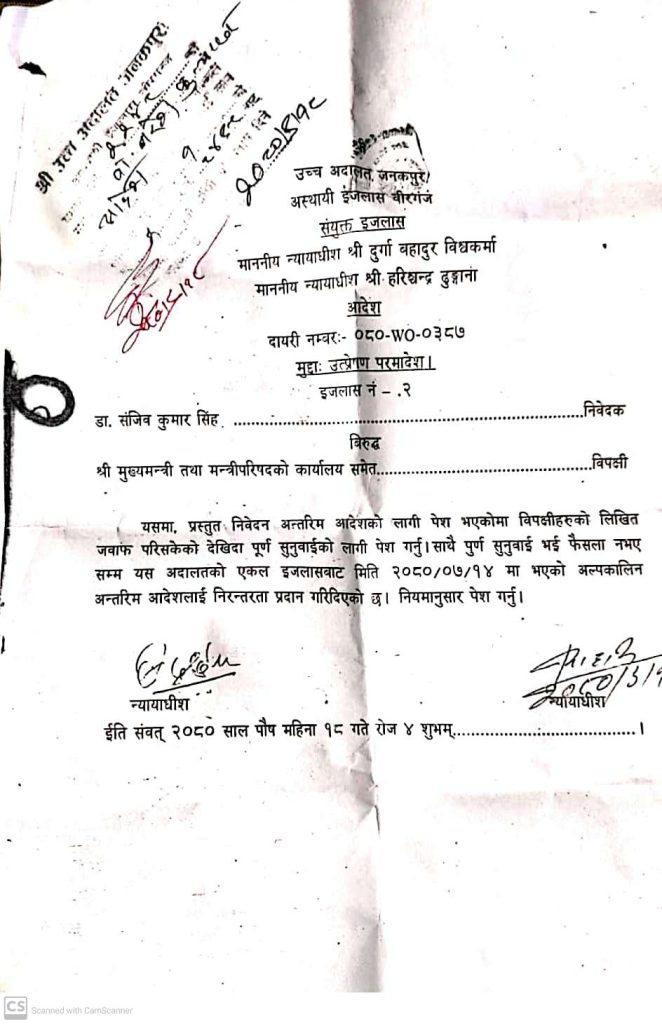 श्री उच्च अदालत जनकपुर
आदेश
२०८०।९।१८
उच्च अदालत जनकपुर
अस्थायी इजलास वीरगंज
संयुक्त इजलास
माननीय न्यायाधीश श्री दुर्गा बहादुर विश्वकर्मा
माननीय न्यायाधीश श्री हरिश्चन्द्र ढुङ्गाना
आदेश
दायरी नम्बरः- ०८०-WO-०३८७
मुद्दाः उत्प्रेषण परमादेश।
इजलास नं - .२
डा. संजिव कुमार सिंह ............................................................निवेदक
विरुद्ध
श्री मुख्यमन्त्री तथा मन्त्रीपरिषदको कार्यालय समेत.....................................विपक्षी
यसमा, प्रस्तुत निवेदन अन्तरिम आदेशको लागी पेश भएकोमा विपक्षीहरुको लिखित
जवाफ परिसकेको देखिदा पूर्ण सुनुवाईको लागी पेश गर्नु। साथै पुर्ण सुनुवाई भई फैसला नभए
सम्म यस अदालतको एकल इजलासवाट मिति २०८०/०७/१४ मा भएको अल्पकालिन
अन्तरिम आदेशलाई निरन्तरता प्रदान गरिदिएको छ। नियमानुसार पेश गर्नु।
न्यायाधीश
न्यायाधीश
ईति संवत् २०८० साल पौष महिना १८ गते रोज ४ शुभम्................................।
CS Scanned with CamScanner